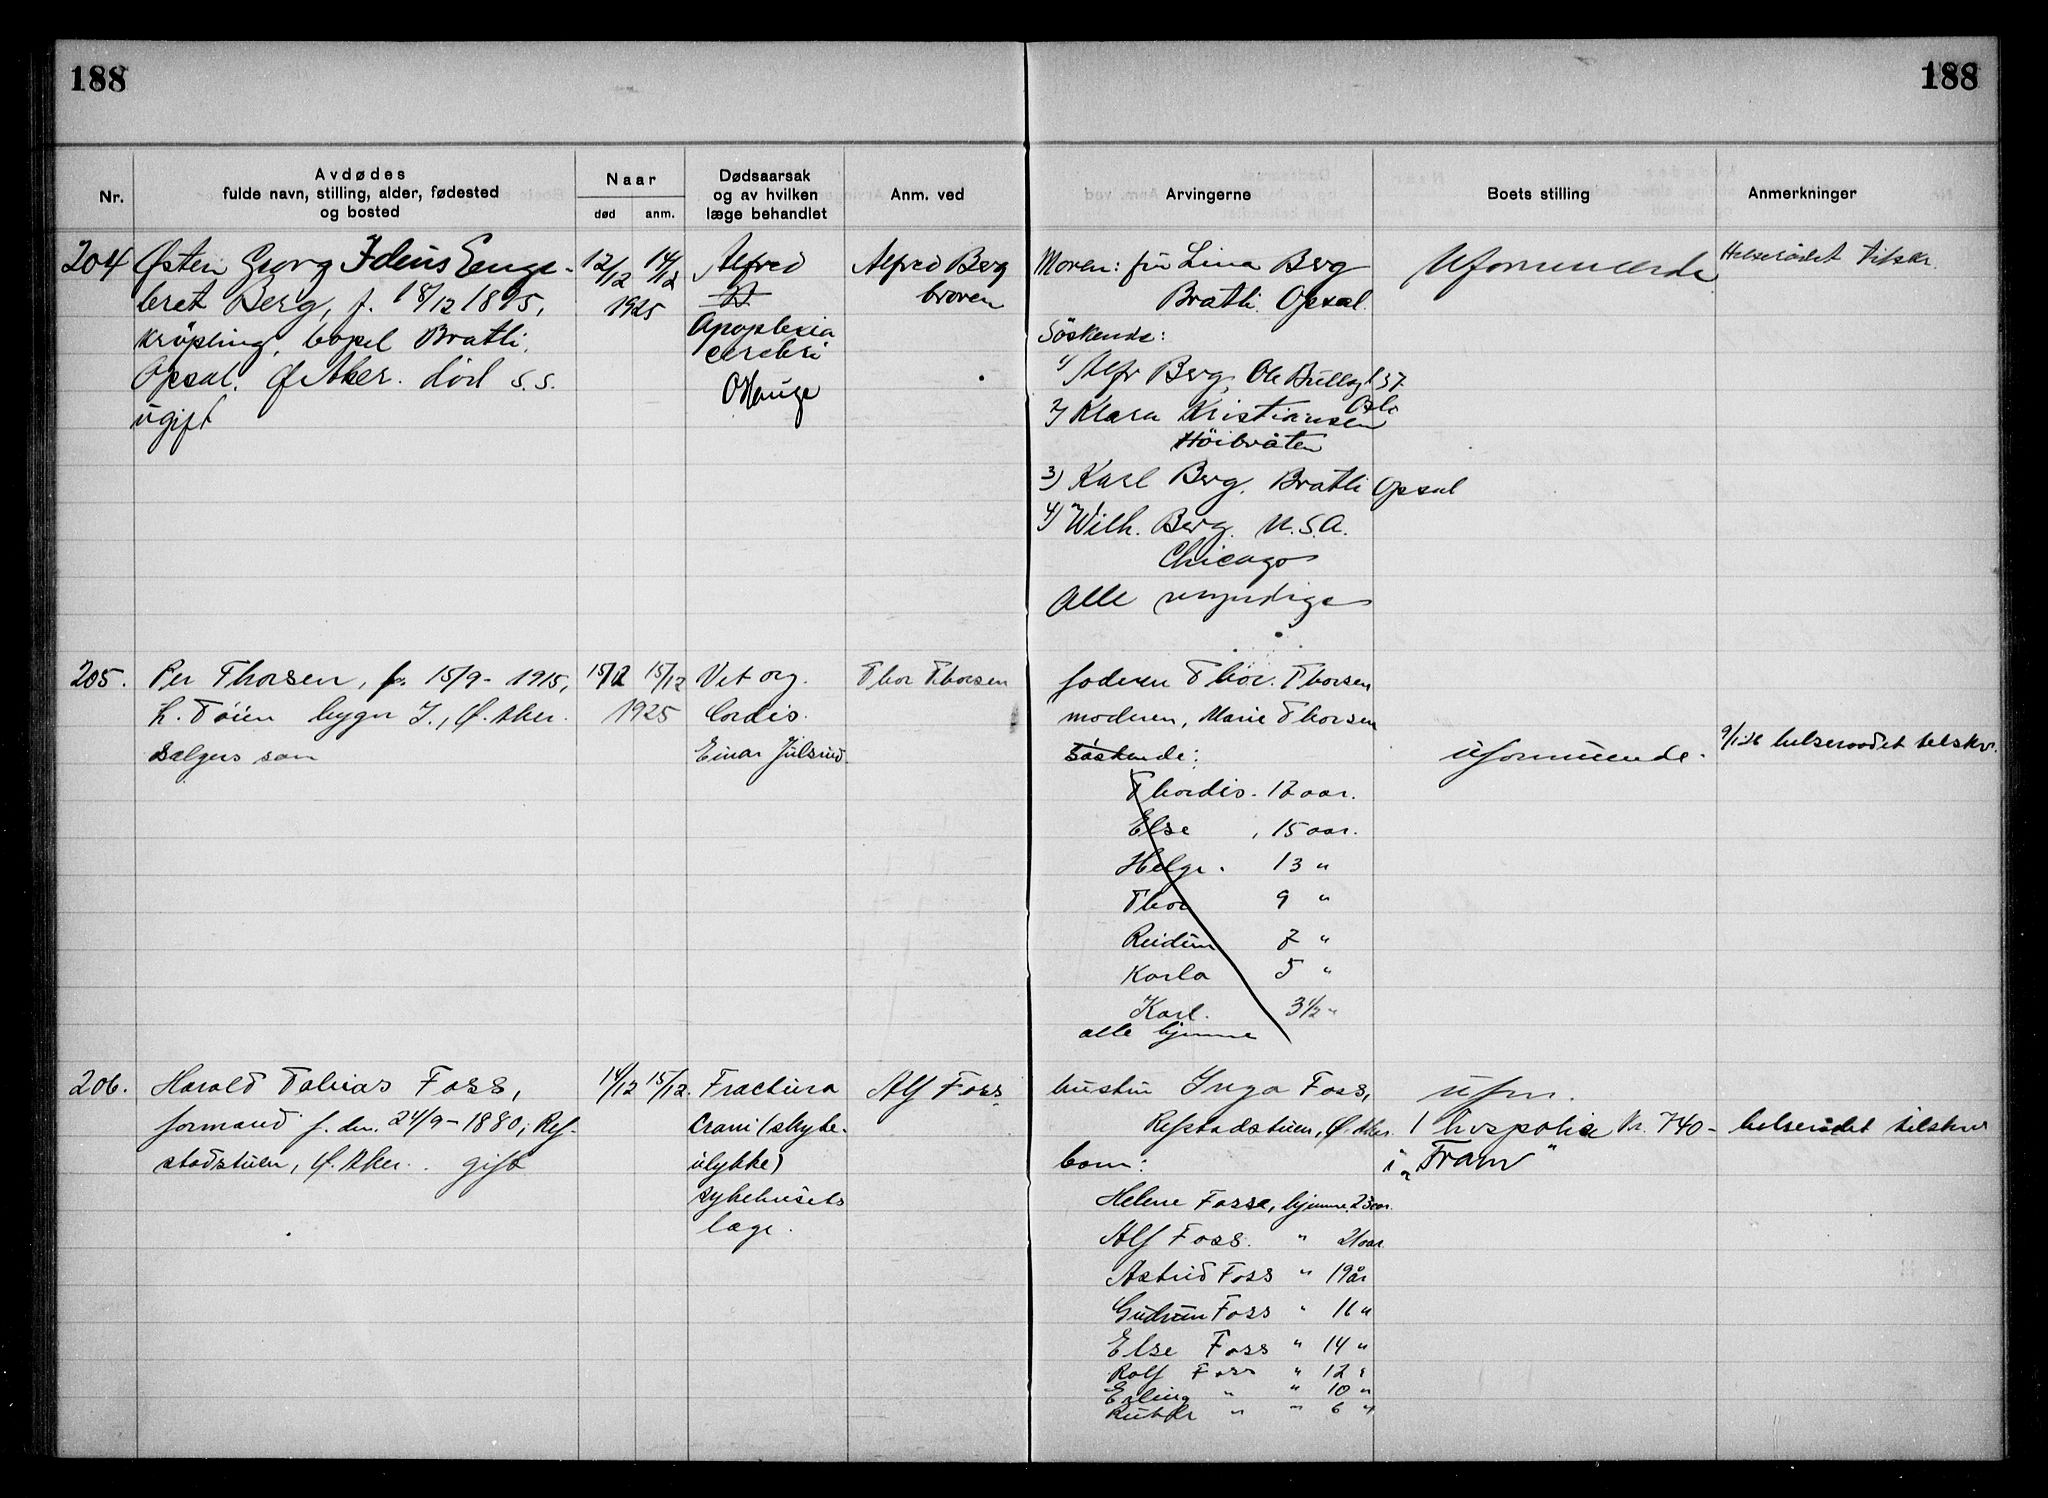 188
188
Nr.
Avdødes
fulde navn, stilling, alder, fødested
og bosted
Naar
død
anm.
Dødsaarsak
og av hvilken
læge behandlet
Anm. ved
Arvingerne
Boets stilling
Anmerkninger
204
Østen Georg Ideus Enge-
bret Berg, f. 18/12 1895,
krøpling, bopel Bratli,
Opsal. Ø Aker. død s.s.
ugift
12/12 14/12
1925
Alfred
Apoplexia
cerebri
O Hauge
Alfred Berg
broren
Moren: fru Lina Berg
Bratli Opsal.
Söskende:
1) Alfr Berg, Ole Bullsgt 37
Oslo
2) Klara Kristiansen
Höibråten
3) Karl Berg. Bratli Opsal
4) Wilh. Berg. U.S.A.
Chicago
Alle myndige
Uformuende
Helserådet tilskr.
205.
Per Thorsen, f. 15/9 - 1915,
L. Töien bygn I., Ø. Aker.
Sælgers søn
15/12 15/12
1925
Vit org.
Cordis.
Einar Julsrud.
Thor Thorsen
faderen Thor. Thorsen
moderen, Marie Thorsen
Söskende:
Thordis. 17 aar.
Else , 15 aar.
Helge. 13 "
Thor 9 "
Reidun 7 "
Karla 5 "
Karl. 3 1/2 "
alle hjemme
uformuende.
9/1 26 helseraadet tilskr.
206.
Harald Tobias Foss,
formand f. den. 24/9 - 1880, Ref-
stadstuen, Ø. Aker. gift
14/12 15/12.
Fractura
Crani (skytte-
ulykke)
sykehusets
læge.
Alf Foss
hustru Inga Foss,
Refstadstuen, Ø. Aker.
barn:
Helene Fosse, hjemme 23 aar.
Alf Foss. " 21 aar
Astrid Foss " 19 år
Gudrun Foss " 16 "
Else Foss " 14 "
Rolf Foss " 12 "
Erling " " 10 "
Ruth " " 6 "
ufm.
1 livspolice Kr. 740 -
i "Fram"
helserådet tilskrev